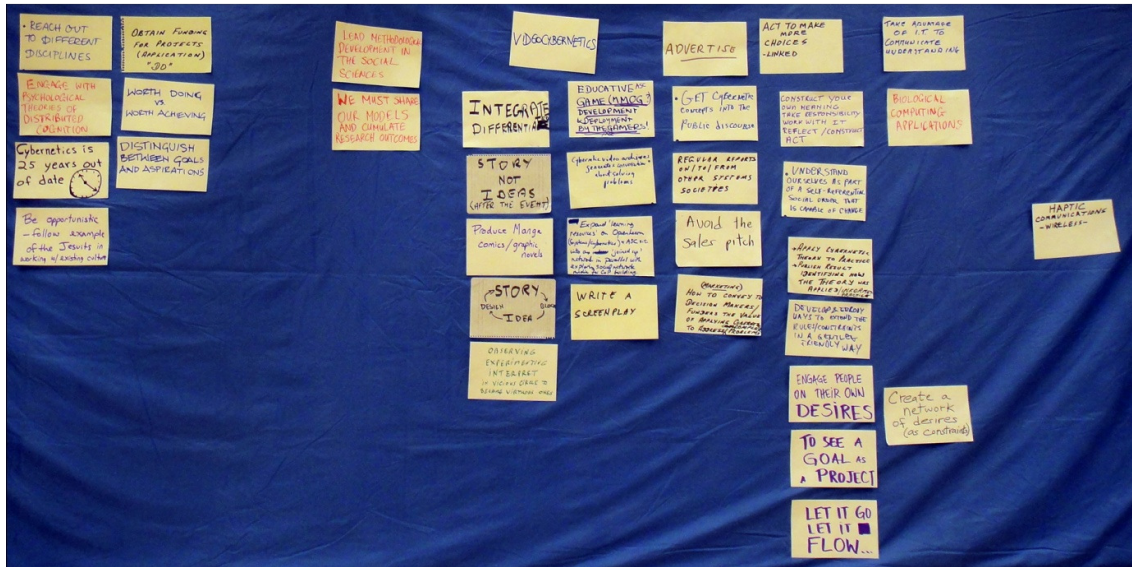 • REACH OUT
TO DIFFERENT
DISCIPLINES
ENGAGE WITH
PSYCHOLOGICAL
THEORIES OF
DISTRIBUTED
COGNITION
Cybernetics is
25 years out
of date
Be opportunistic
- follow example
of the Jesuits in
working w/ existing culture
OBTAIN FUNDING
FOR PROJECTS
(APPLICATION)
"DO"
WORTH DOING
VS.
WORTH ACHIEVING
DISTINGUISH
BETWEEN GOALS
AND ASPIRATIONS
LEAD METHODOLOGICAL
DEVELOPMENT IN
THE SOCIAL
SCIENCES
WE MUST SHARE
OUR MODELS
AND CUMULATE
RESEARCH OUTCOMES
INTEGRATE
DIFFERENTIA
STORY
NOT
IDEAS
(AFTER THE EVENT)
Produce Manga
comics/graphic
novels
STORY
DESIGN
IDEA
OBSERVING
EXPERIMENTING
INTERPRET
VIDEOCYBERNETICS
EDUCATIVE AS
GAME (MMOG?)
DEVELOPMENT
& DEPLOYMENT
BY THE GAMERS!
about solving
problems
Expand learning
resources on
WRITE A
SCREENPLAY
ADVERTISE
• GET Cybernetic
concepts into the
Public discourse
REGULAR REPORTS
ON/TO/FROM
OTHER SYSTEMS
SOCIETIES
Avoid the
sales pitch
(MARKETING)
HOW TO CONVEY TO
DECISION MAKERS/
FUNDERS THE VALUE
OF APPLYING
TO ADDRESS/PROBLEMS
ACT TO MAKE
MORE
CHOICES
-LINKED
CONSTRUCT YOUR
OWN MEANING
TAKE RESPONSIBILITY
WORK WITH IT
REFLECT/CONSTRUCT
ACT
• UNDERSTAND
OURSELVES AS PART
OF A SELF-REFERENTIAL
SOCIAL ORDER THAT
IS CAPABLE OF CHANGE
APPLY CYBERNETIC
THEORY TO PRACTICE
PUBLISH RESULT
IDENTIFYING HOW
THE THEORY WAS
APPLIED/
DEVELOP & EMBODY
WAYS TO EXTEND THE
RULES/CONSTRAINTS
IN A GENTLE,
FRIENDLY WAY
ENGAGE PEOPLE
ON THEIR OWN
DESIRES
TO SEE A
GOAL AS
A PROJECT
LET IT GO
LET IT
FLOW...
TAKE ADVANTAGE
OF I.T. TO
COMMUNICATE
UNDERSTANDING
BIOLOGICAL
COMPUTING
APPLICATIONS
Create a
network
of desires
(as constraints)
HAPTIC
COMMUNICATIONS
-WIRELESS-